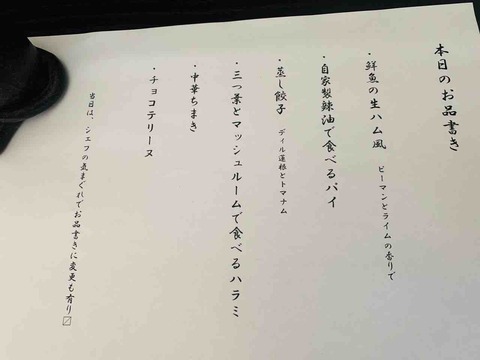 本日のお品書き
・鮮魚の生ハム風 ピーマンとライムの香りで
・自家製辣油で食べるパイ
・蒸し餃子 ディル蓮根とトマナム
・三つ葉とマッシュルームで食べるハラミ
・中華ちまき
・チョコテリーヌ
当日は、シェフの気まぐれでお品書きに変更も有り〼